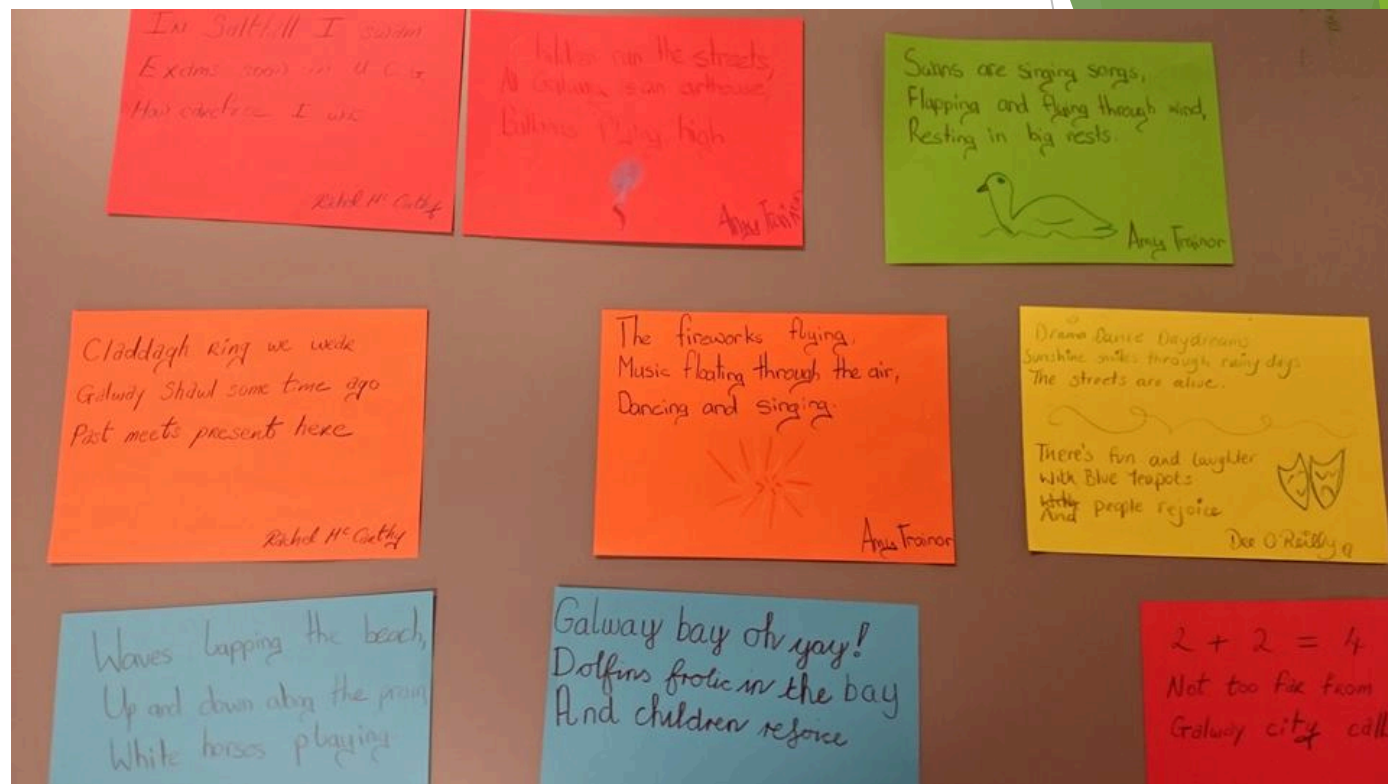 In Salthill I swam
Exams soon in U C G
How carefree I was
Rachel Mc Carthy
run the streets,
Galway is an arthouse,
Ballons flying high
Amy Trainor
Swans are singing songs,
Flapping and flying through wind,
Resting in big nests.
Amy Trainor
Claddagh Ring we wear
Galway Shawl some time ago
Past meets present here
Rachel Mc Carthy
The fireworks flying,
Music floating through the air,
Dancing and singing.
Amy Trainor
Drama Dance Daydreams
Sunshine smiles through rainy days
The streets are alive.
There's fun and laughter
With Blue Teapots
And people rejoice
Dee O'Reilly
Waves lapping the beach,
Up and down along the prom
White horses playing
Galway bay oh yay!
Dolfins frolic in the bay
And children rejoice
2 + 2 = 4
Not too far from
Galway city call